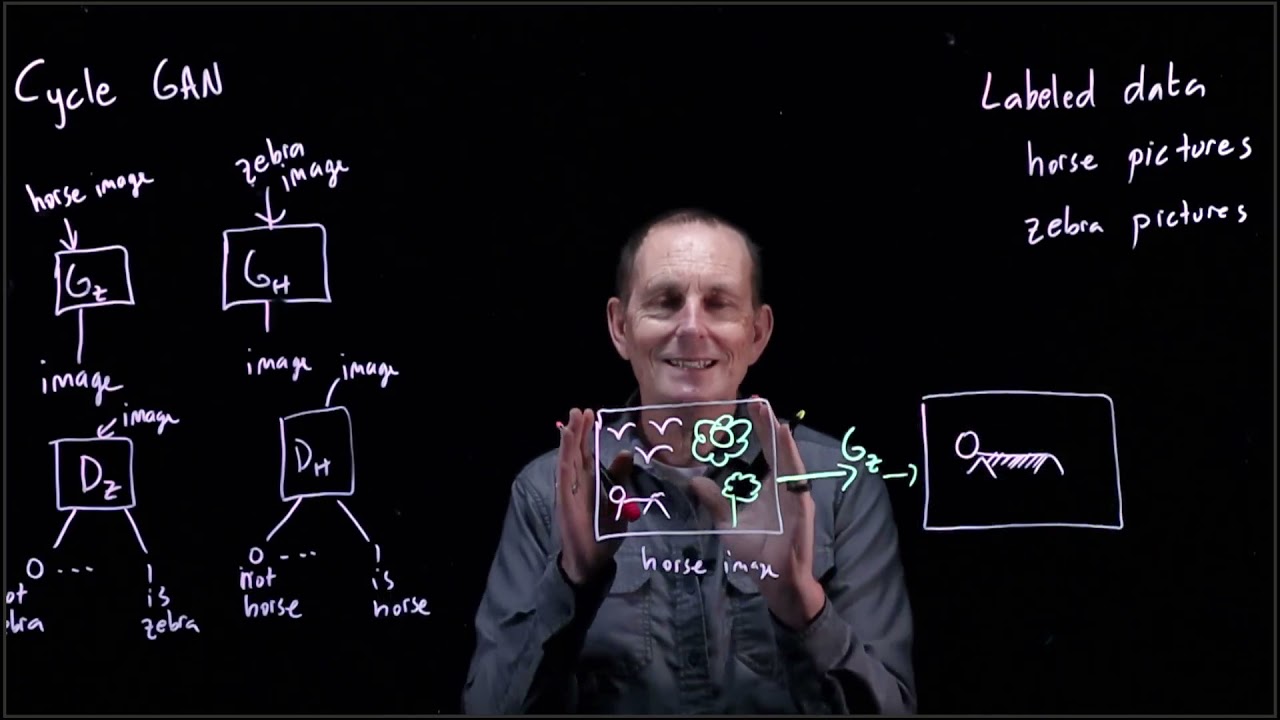 Cycle GAN
Labeled data
horse pictures
zebra pictures
horse image
zebra
image
G_Z
G_H
image
image
image
image
D_Z
D_H
0 ... 1
is
zebra
0 ... 1
not
horse
is
horse
G_Z
horse image